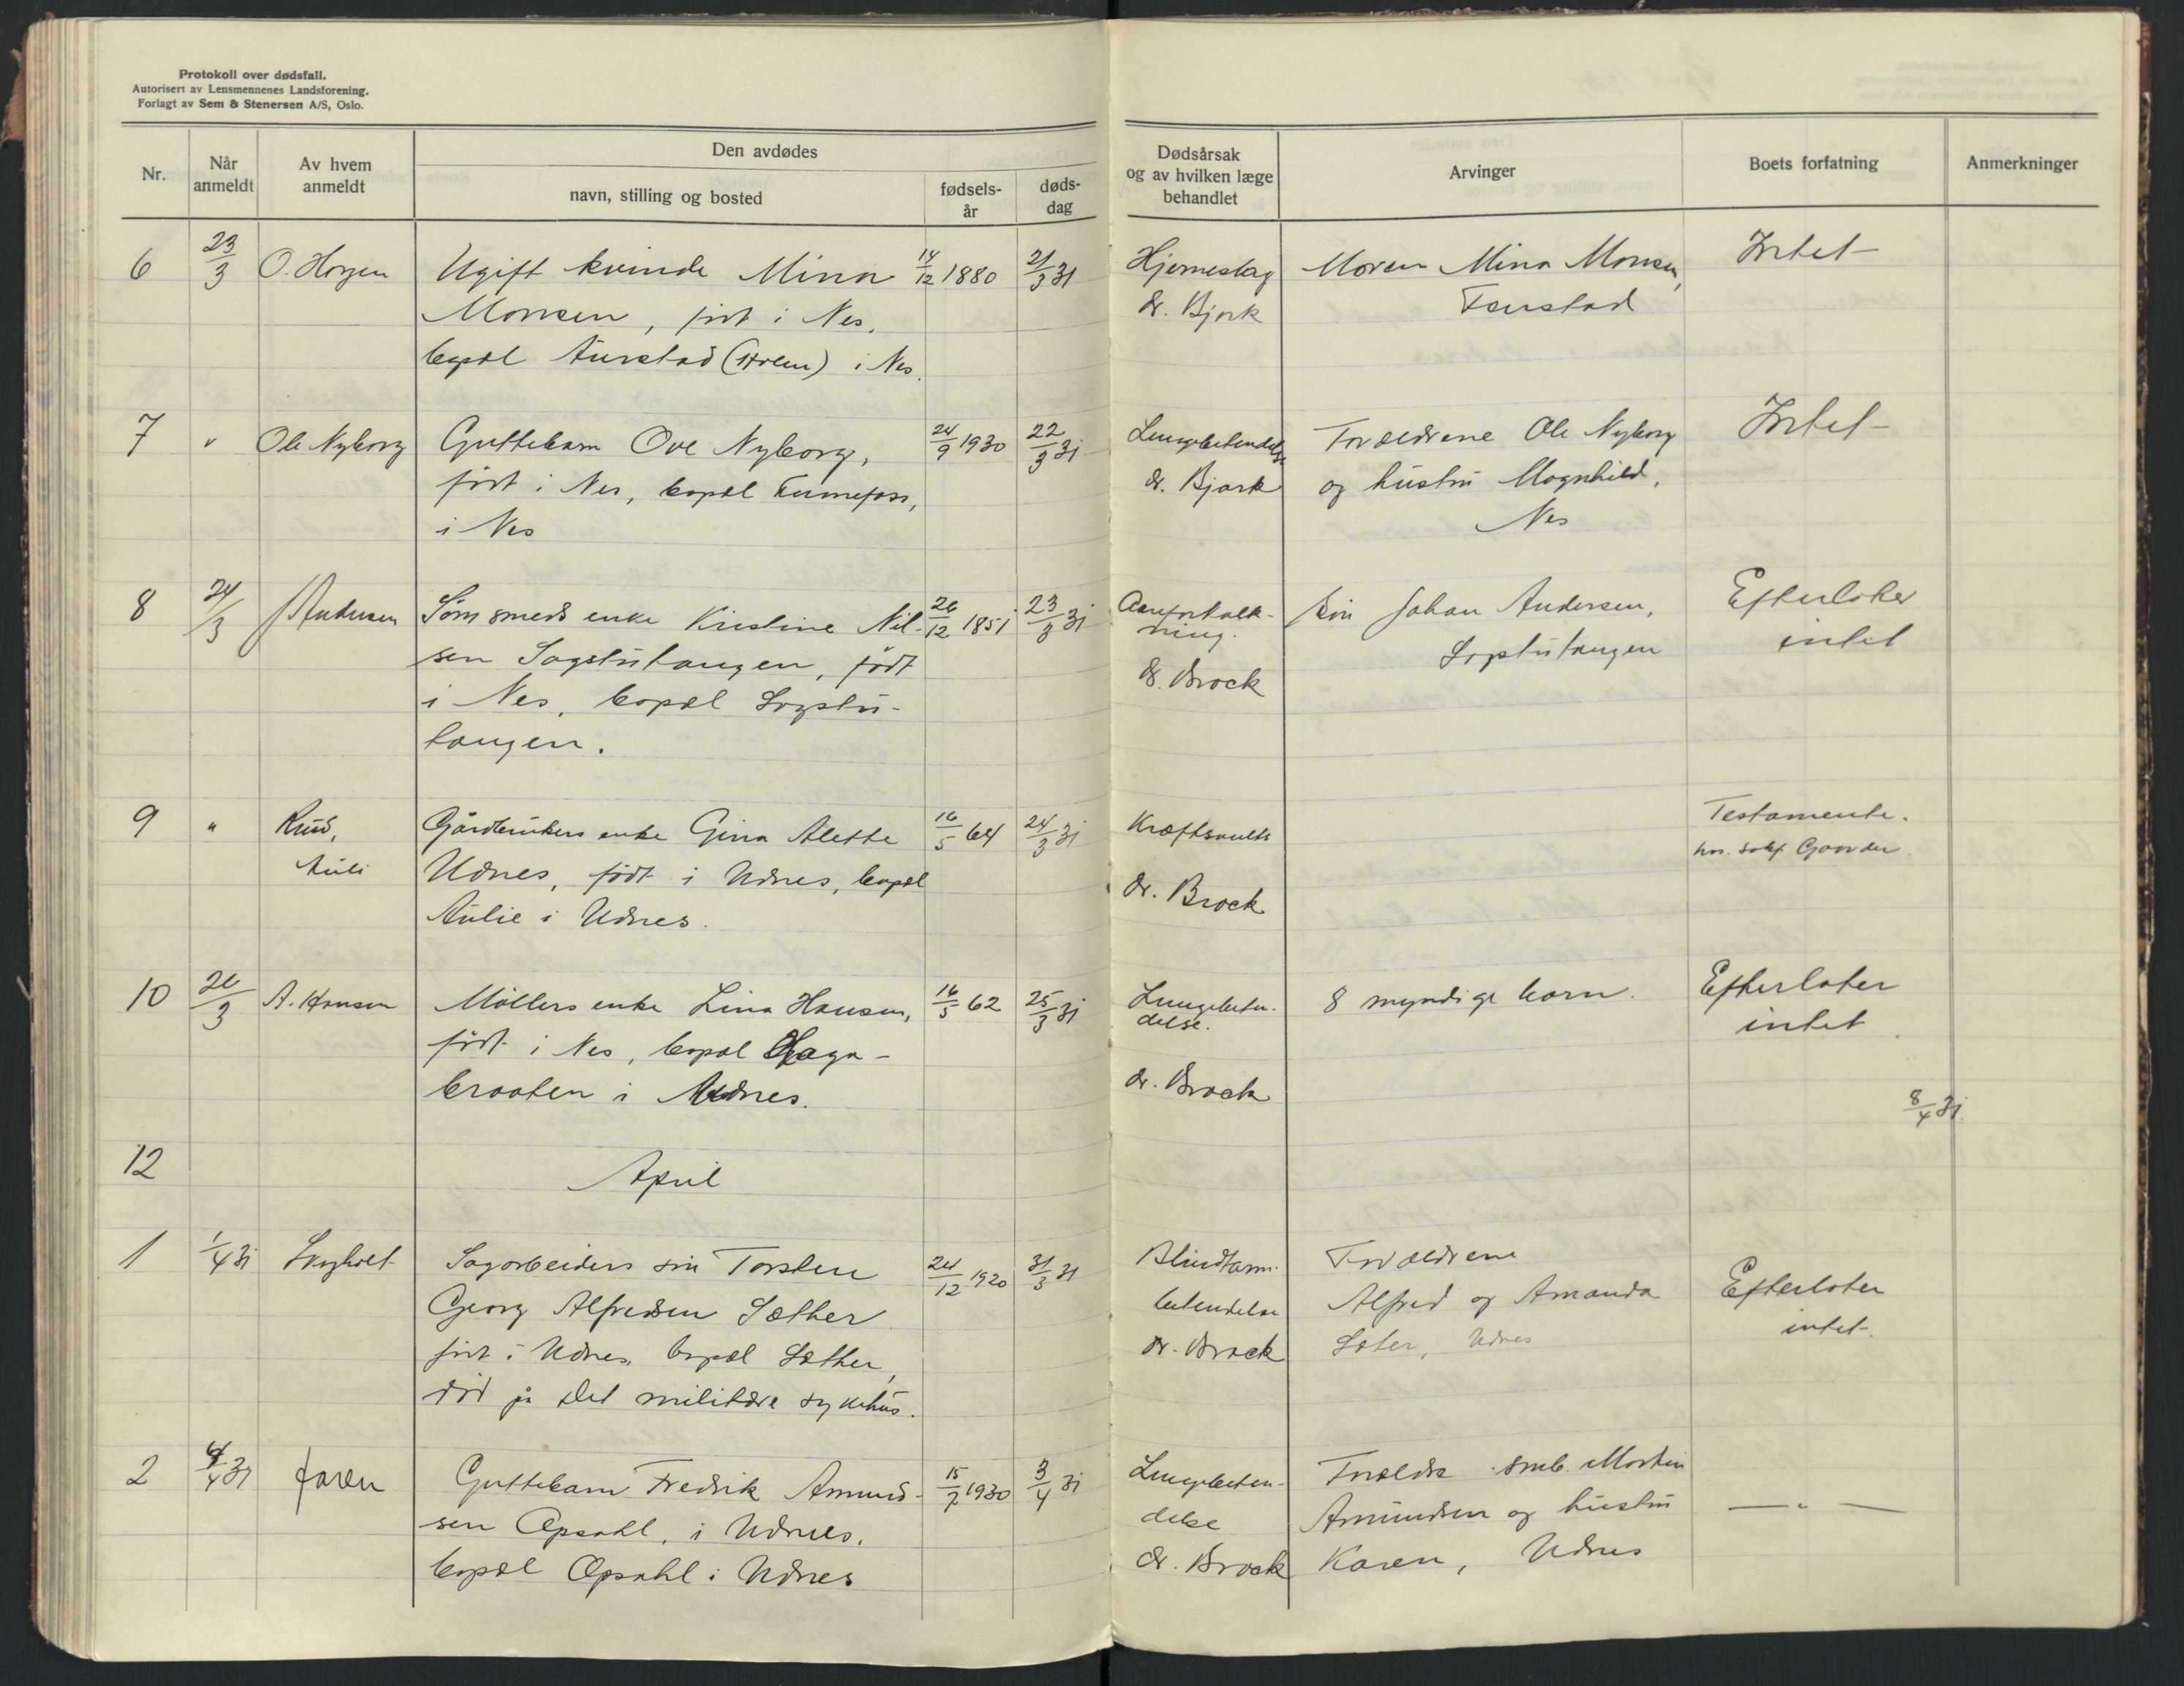 Protokoll over dødsfall.
Autorisert av Lensmennenes Landsforening.
Forlagt av Sem & Stenersen A/S, Oslo.
Nr.
Når anmeldt
Av hvem anmeldt
Den avdødes
navn, stilling og bosted
fødsels-år
døds-dag
Dødsårsak og av hvilken læge behandlet
Arvinger
Boets forfatning
Anmerkninger
6 23/3 O. Horgen Ugift kvinde Mina 14/12 1880 21/3 31 Hjerneslag Moren Mina Monsen, Intet
Monsen, født i Nes, dr. Bjørk Fenstad
bopæl Aurstad (Holm) i Nes.
7 " Ole Nyborg Guttebarn Ove Nyborg, 24/9 1930 22/3 31 Lungebetendelse Forældrene Ole Nyborg Intet
født i Nes, bopæl Funnefoss, dr. Bjørk og hustru Magnhild,
i Nes Nes
8 24/3 J Andersen Sømsmeds enke Kristine Nil- 26/12 1851 23/3 31 Aareforkalk- Søn Johan Andersen, Efterlater
sen Sagstutangen, født ning. Sagstutangen intet
i Nes, bopæl Sagstu- dr. Brock
tangen.
9 " Ruud, Gårdbrukers enke Gina Alette 16/5 64 24/3 31 Kræftsvulst Testamente.
Auli Udnes, født i Udnes, bopæl hos. sakf. Gaarder.
Aulie i Udnes. dr. Brock
10 26/3 A. Hansen Møllers enke Lina Hansen, 16/5 62 25/3 31 Lungebeten- 8 myndige barn. Efterlater
født i Nes, bopæl Haga- delse. intet.
braaten i Udnes. dr. Brock
8/4 31.
12 April
1 1/4 31 Skogholt Sagarbeiders søn Torstein 24/12 1920 31/3 31 Blindtarm- Forældrene
Georg Alfredsen Sæther betendelse Alfred og Amanda Efterlater
født i Udnes, bopæl Sæther, dr. Brock Sæter, Udnes intet.
død på det militære sykehus.
2 4/4 31 Jaren Guttebarn Fredrik Amund- 15/7 1930 3/4 31 Lungebeten- Forældre smb. Martin
sen Opsahl, i Udnes, delse Amundsen og hustru — " —
bopæl Opsahl i Udnes dr. Brock Karen, Udnes